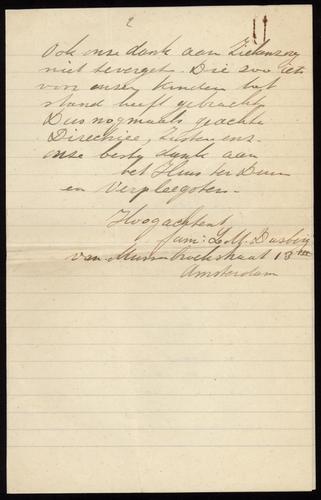 2
11
Ook onze dank aan Ziekenzorg
niet teverget. Die zoo iets
voor onzen kinden tot
stand heeft gebracht
Dus nogmaals geachte
Directriee, Zusters enz.
onze beste dank aan
het Huis ter Duin
en Verpleegsters.
Hoogachtent
fam: L. M. Dasberg
van Musschenbroekstraat 13
Amsterdam